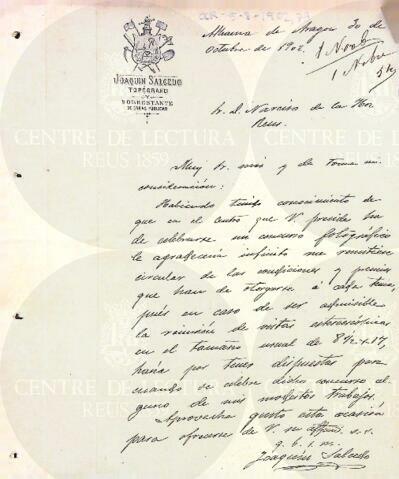 CCR-5-8-1902,
Alhama de Aragon 30 de
Octubre de 1902.
JOAQUIN SALCEDO
TOPÓGRAFO
Y
SOBRESTANTE
DE OBRAS PÚBLICAS
Sr. D. Narciso de la
Reus.
CENTRE DE LECTURA
REUS 1859
Muy Sr. mio y de toda mi
consideración:
Habiendo tenido conocimiento de
que en el Centro que V. preside ha
de celebrarse un concurso fotográfico
le agradeceria infinito me remitiera
circular de las condiciones y premios
que han de otorgarse á cada tema,
pues en caso de ser admisible
la reunión de vistas estereoscópicas
en el tamaño usual de 8½ x 17,
haria por tener dispuestas para
cuando se celebre dicho concurso al-
guno de mis modestos trabajos.
Aprovecha gusto esta ocasión
para ofrecerse de V. su s.s.
q. b. s. m.
Joaquin Salcedo
CENTRE DE LECTURA
REUS 1859